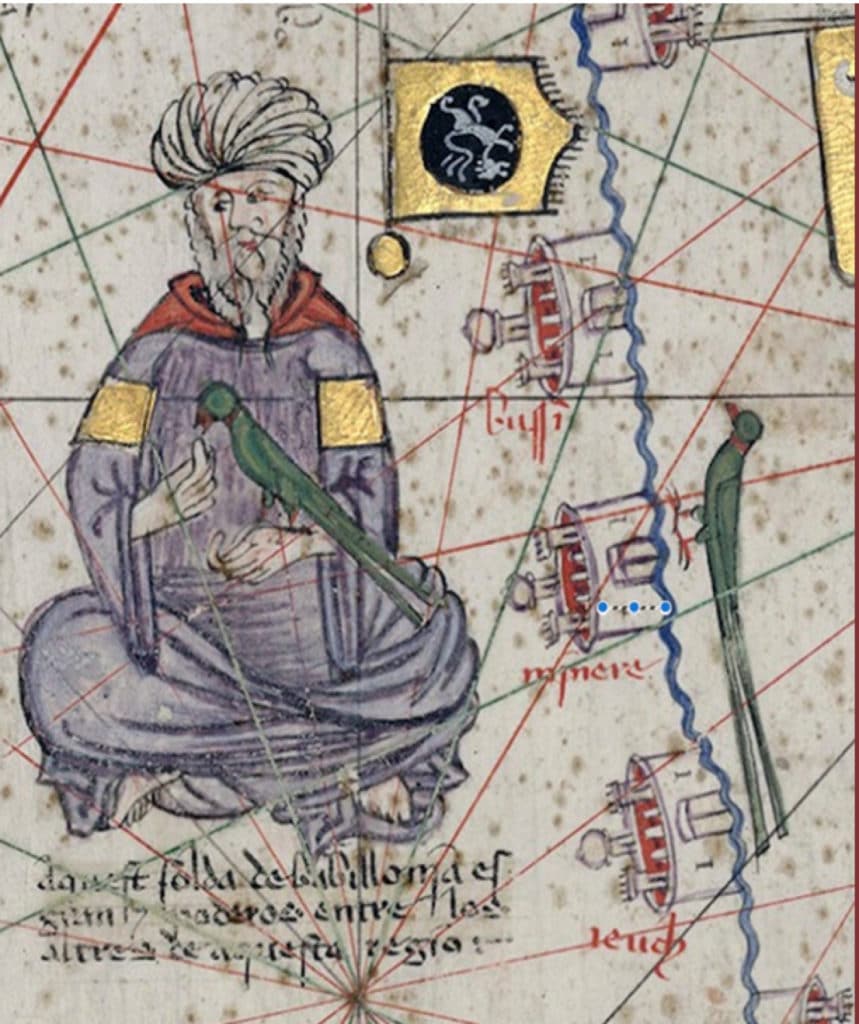 bussi
minere
ieuch
Aquest solda de babillonia es
gran e poderos entre los
altres de aquesta regio :~